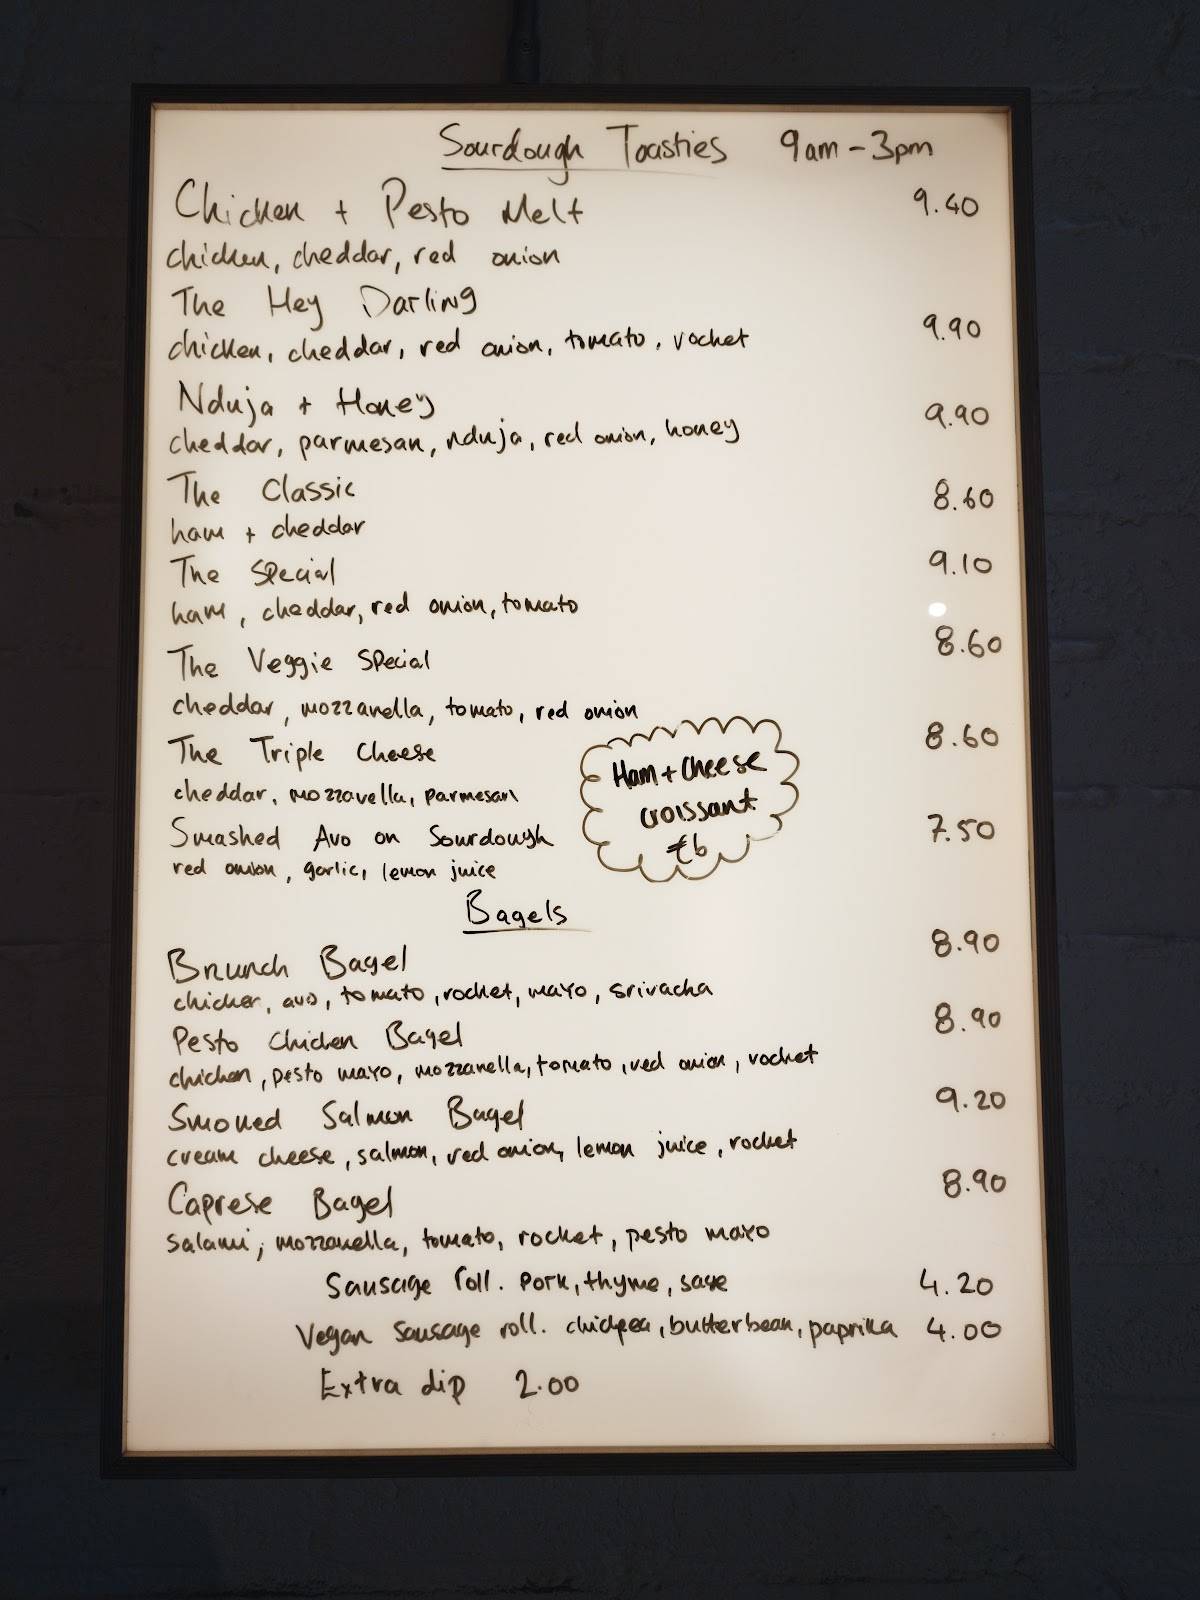 Sourdough Toasties 9am - 3pm
Chicken + Pesto Melt 9.40
chicken, cheddar, red onion
The Hey Darling
chicken, cheddar, red onion, tomato, rocket 9.90
Nduja + Honey 9.90
cheddar, parmesan, nduja, red onion, honey
The Classic 8.60
ham + cheddar
The Special 9.10
ham, cheddar, red onion, tomato
The Veggie Special 8.60
cheddar, mozzarella, tomato, red onion
The Triple Cheese 8.60
cheddar, mozzarella, parmesan
Ham + Cheese
croissant
£6
Smashed Avo on Sourdough 7.50
red onion, garlic, lemon juice
Bagels
Brunch Bagel 8.90
chicken, avo, tomato, rocket, mayo, srivacha
Pesto Chicken Bagel 8.90
chicken, pesto mayo, mozzarella, tomato, red onion, rocket
Smoked Salmon Bagel 9.20
cream cheese, salmon, red onion, lemon juice, rocket
Caprese Bagel 8.90
salami, mozzarella, tomato, rocket, pesto mayo
Sausage roll. Pork, thyme, sage 4.20
Vegan sausage roll. chickpea, butterbean, paprika 4.00
Extra dip 2.00